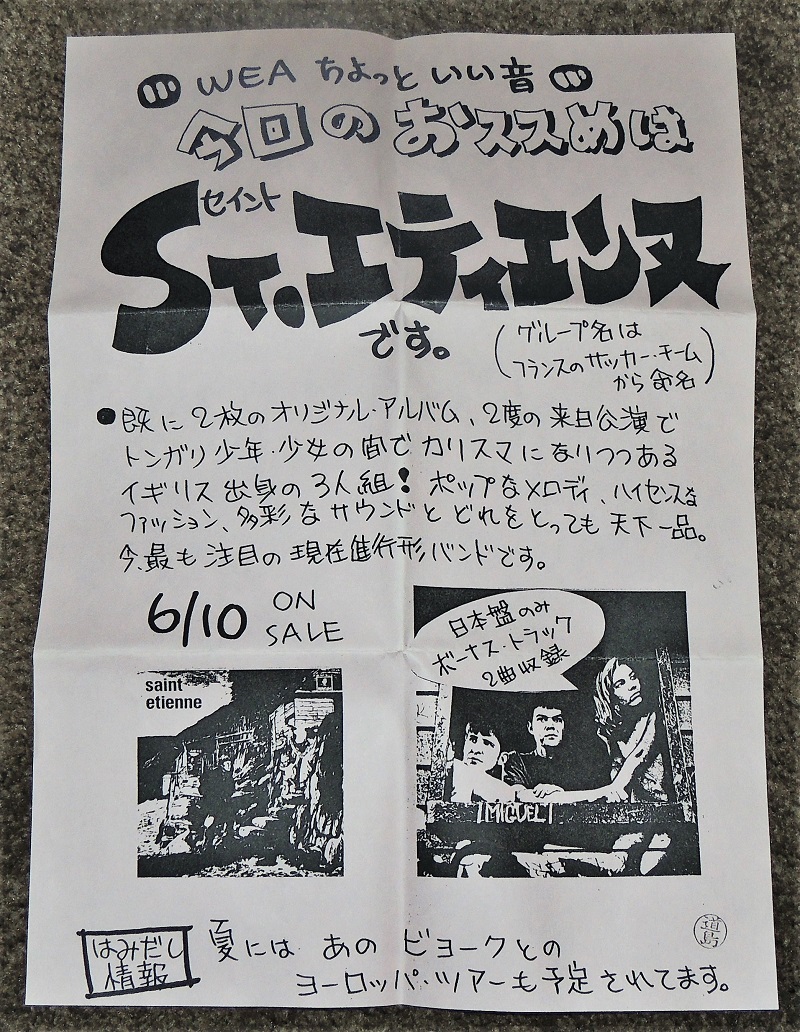 WEA ちょっといい音
今回のおススめは
セイント
ST.エティエンヌ
です。
(グループ名は
フランスのサッカー・チーム
から命名)
●既に2枚のオリジナル・アルバム、2度の来日公演で
トンガリ少年・少女の間でカリスマになりつつある
イギリス出身の3人組!ポップなメロディ、ハイセンスな
ファッション、多彩なサウンドとどれをとっても天下一品。
今、最も注目の現在進行形バンドです。
6/10 ON
SALE
日本盤のみ
ボーナス・トラック
2曲収録
saint
etienne
MIGUEL
はみだし
情報
夏には あの ビョークとの
ヨーロッパ・ツアーも予定されてます。